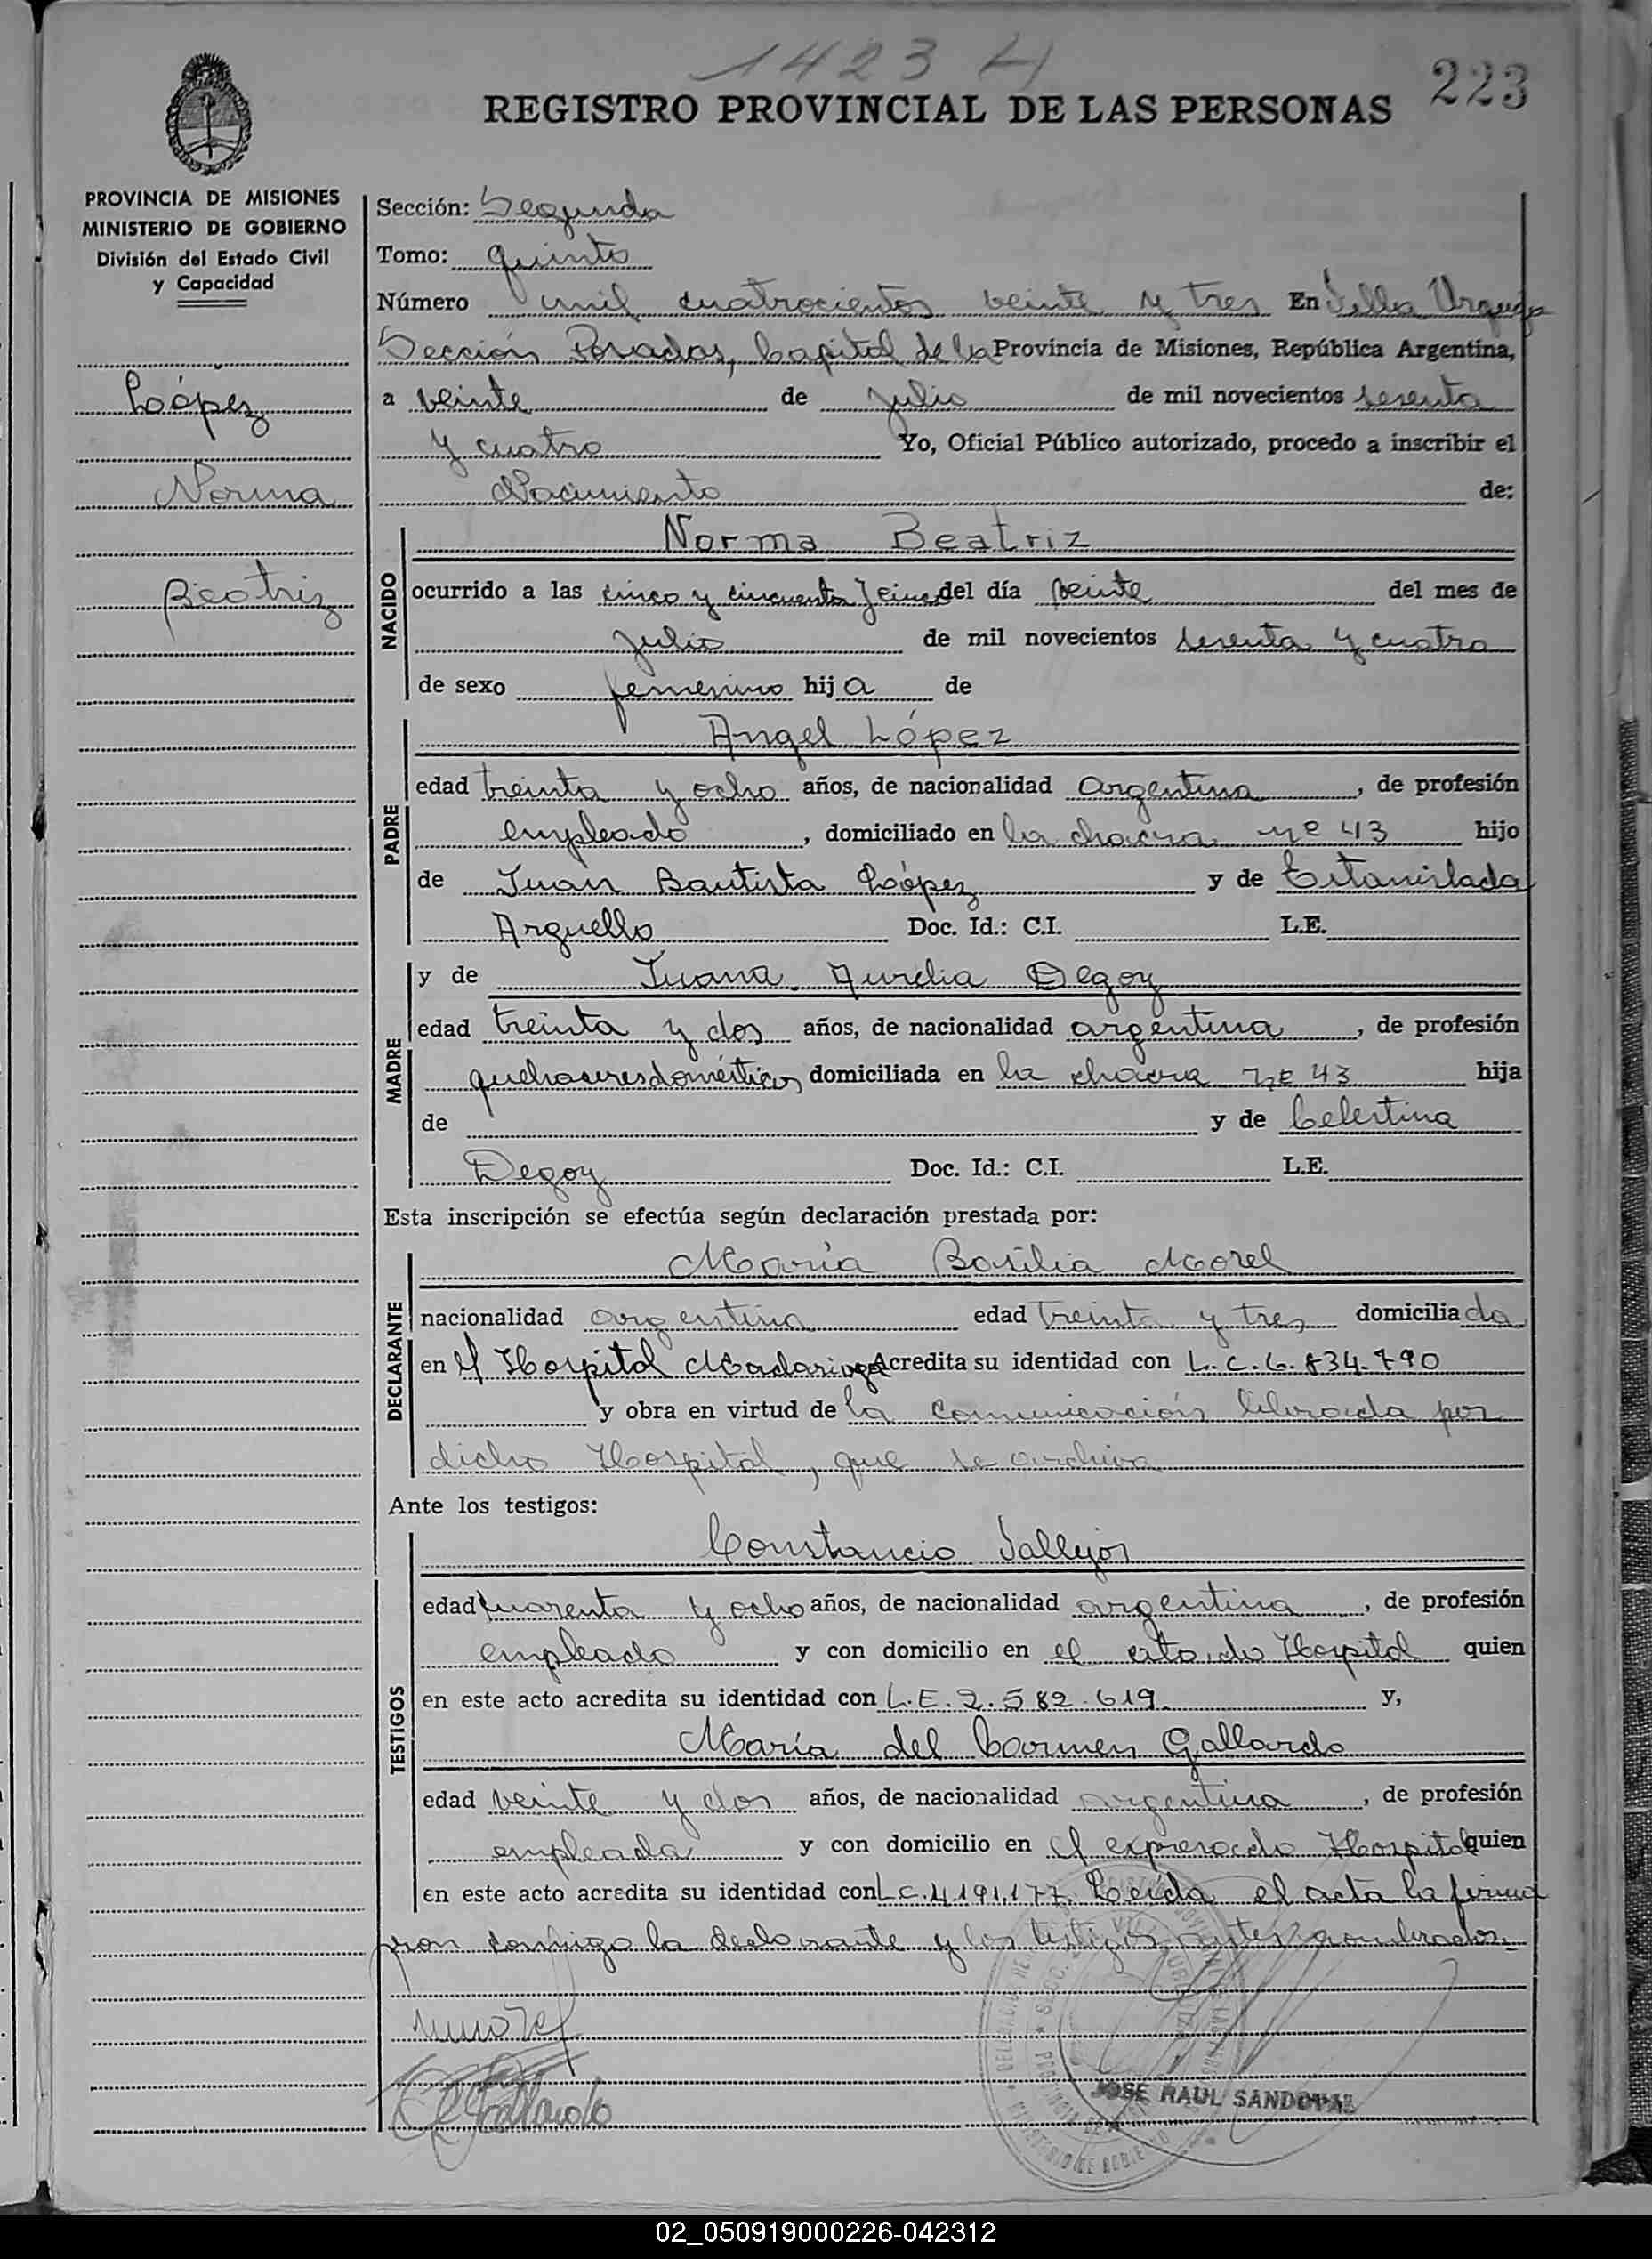 1423 H
223
REGISTRO PROVINCIAL DE LAS PERSONAS
PROVINCIA DE MISIONES
MINISTERIO DE GOBIERNO
División del Estado Civil
y Capacidad
López
Norma
Beatriz
Sección: Segunda
Tomo: quinto
Número mil cuatrocientos veinte y tres En Villa Urquiza
Sección Posadas, Capital de la Provincia de Misiones, República Argentina,
a veinte de julio de mil novecientos sesenta
y cuatro Yo, Oficial Público autorizado, procedo a inscribir el
Nacimiento de:
NACIDO
Norma Beatriz
ocurrido a las cinco y cincuenta y cinco del día veinte del mes de
julio de mil novecientos sesenta y cuatro
de sexo femenino hija de
PADRE
Angel López
edad treinta y ocho años, de nacionalidad argentina, de profesión
empleado, domiciliado en la chacra nº 43 hijo
de Juan Bautista López y de Estanislada
Arguello Doc. Id.: C.I. L.E.
MADRE
y de Juana Aurelia Degoy
edad treinta y dos años, de nacionalidad argentina, de profesión
quehaceres domésticos domiciliada en la chacra nº 43 hija
de y de Celestina
Degoy Doc. Id.: C.I. L.E.
Esta inscripción se efectúa según declaración prestada por:
DECLARANTE
María Basilia Morel
nacionalidad argentina edad treinta y tres domiciliada
en el Hospital Madariaga Acredita su identidad con L.C. 6.834.790
y obra en virtud de la comunicación librada por
dicho Hospital, que se archiva
Ante los testigos:
TESTIGOS
Constancio Vallejos
edad cuarenta y ocho años, de nacionalidad argentina, de profesión
empleado y con domicilio en el citado Hospital quien
en este acto acredita su identidad con L.E. 2.582.619 y,
María del Carmen Gallardo
edad veinte y dos años, de nacionalidad argentina, de profesión
empleada y con domicilio en el expresado Hospital quien
en este acto acredita su identidad con L.C. 4.191.177. Leída el acta la firma
ron conmigo la declarante y los testigos antes nombrados.
Gallardo
JOSE RAUL SANDOVAL
02_050919000226-042312